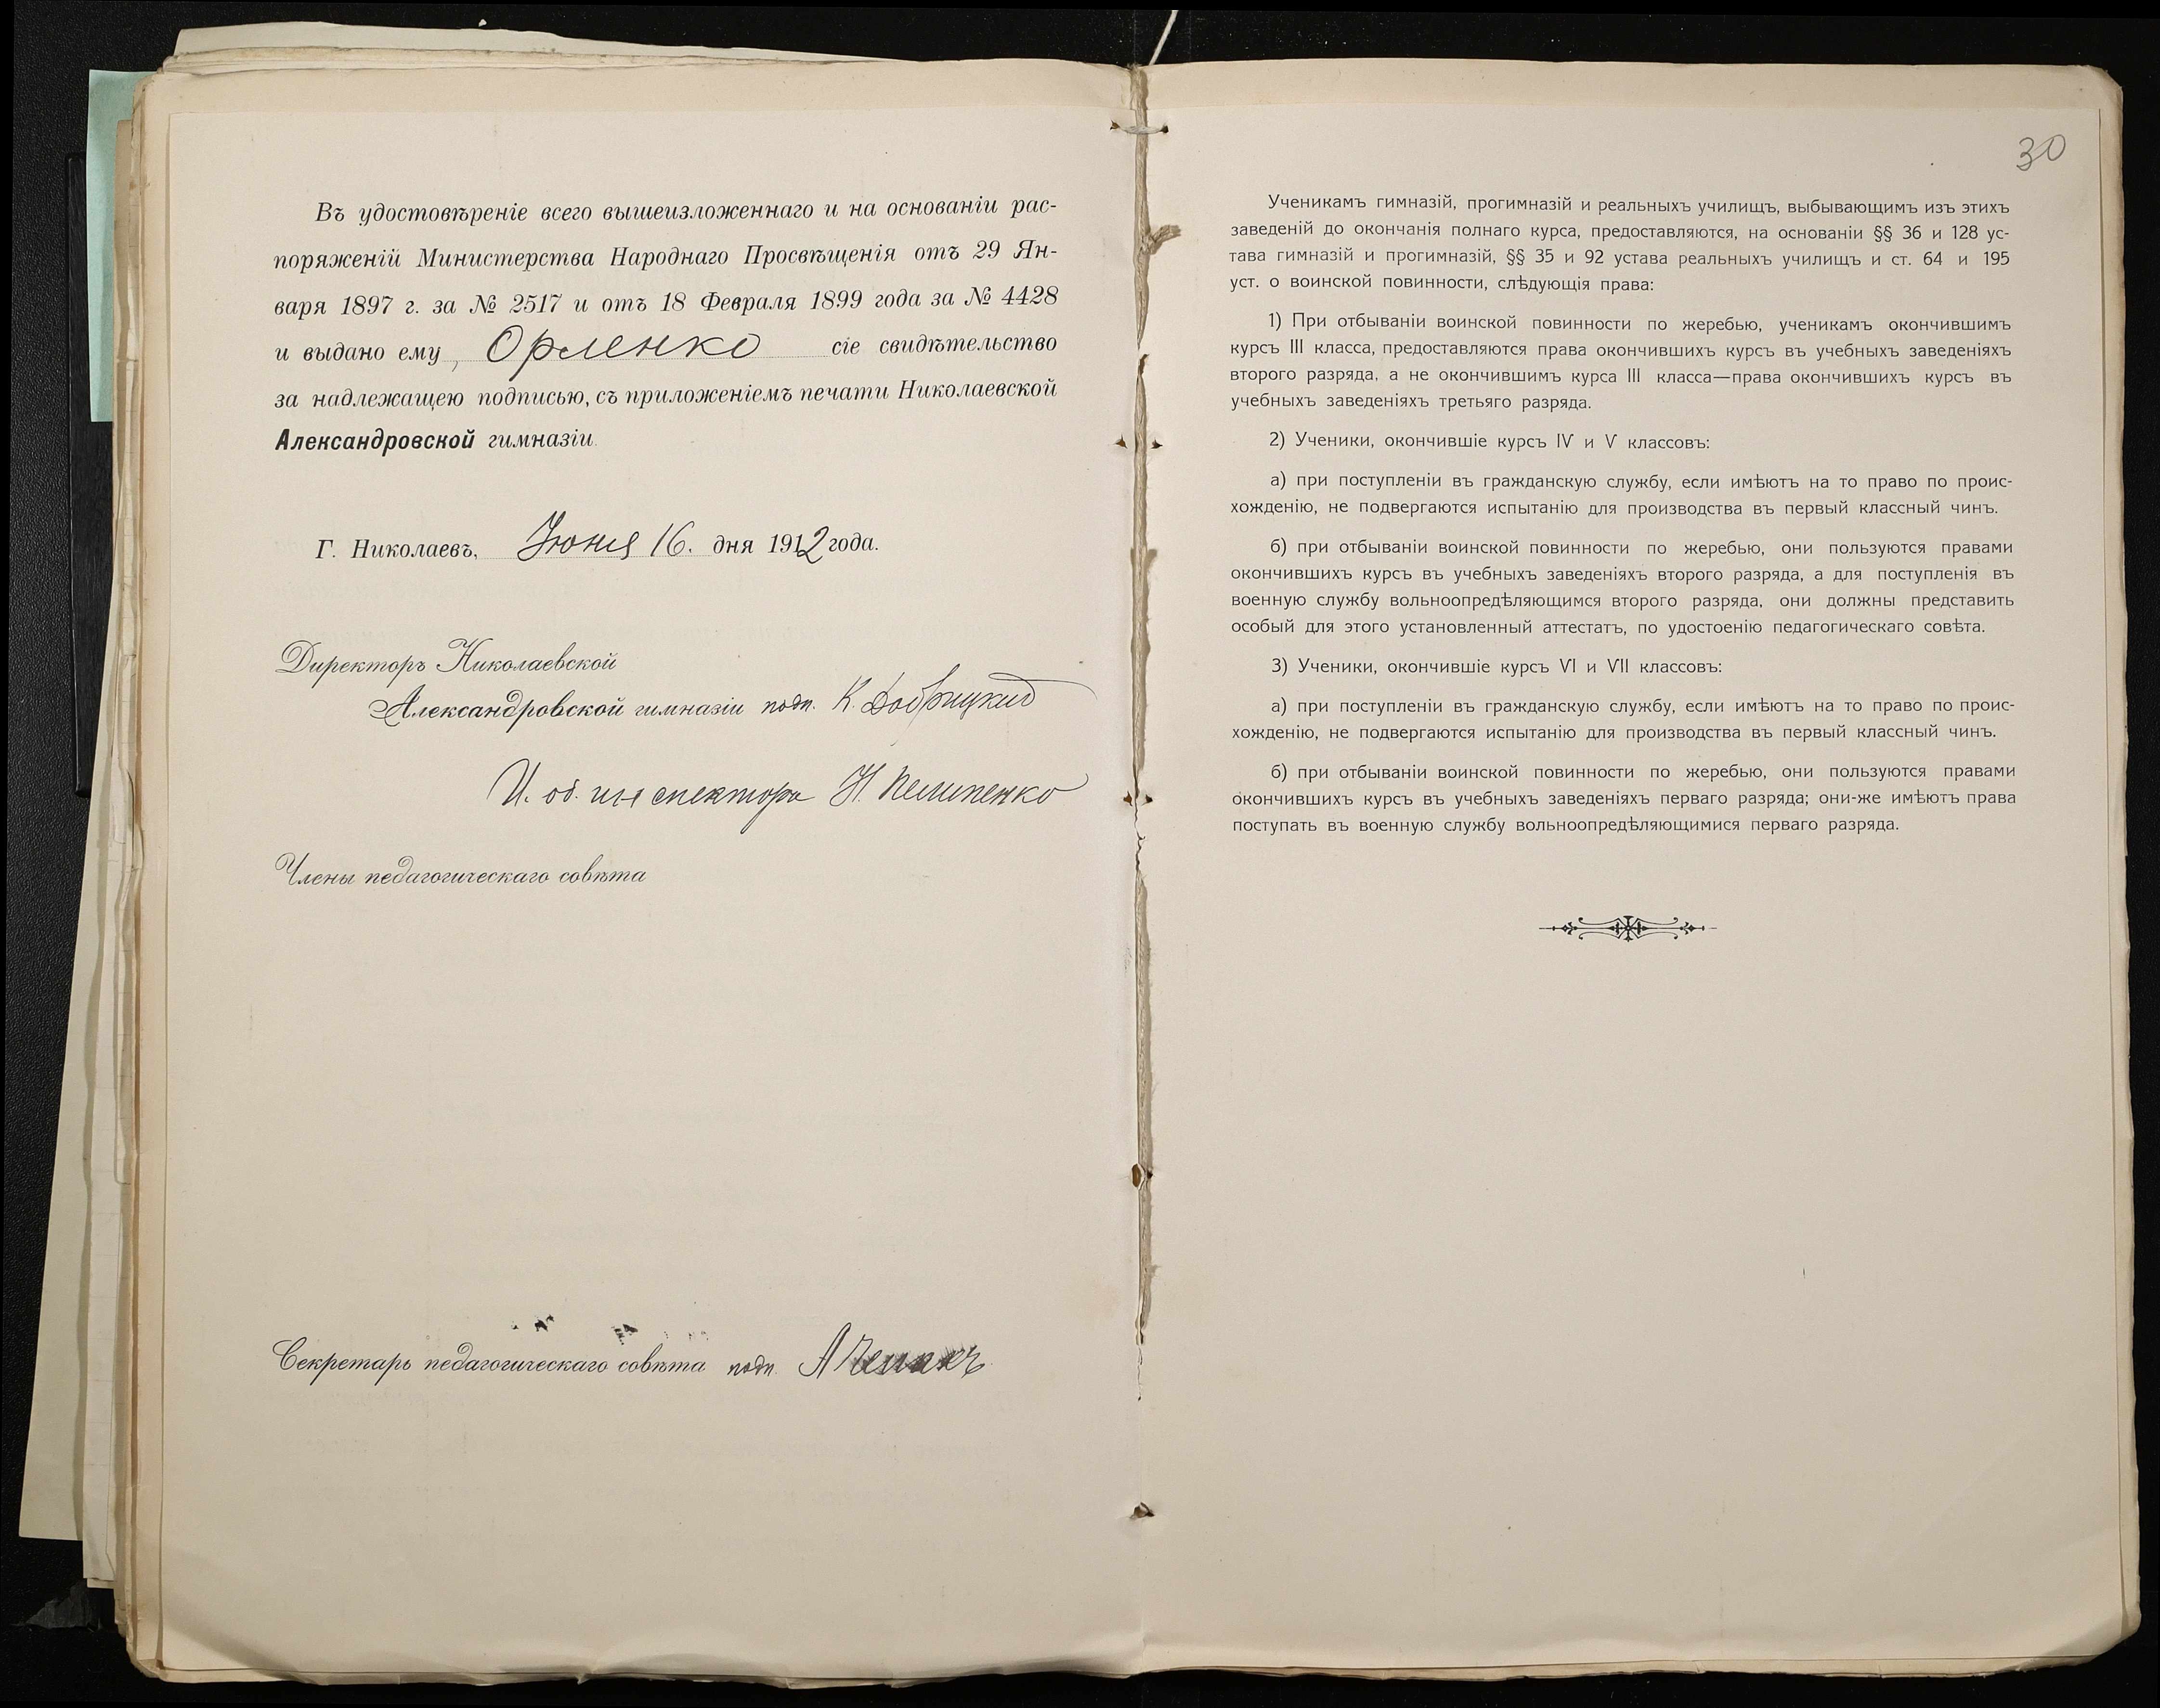 Въ удостовѣреніе всего вышеизложеннаго и на основаніи рас-
поряженій Министерства Народнаго Просвѣщенія отъ 29 Ян-
варя 1897 г. за № 2517 и отъ 18 Февраля 1899 года за № 4428
и выдано ему, Орленко сіе свидѣтельство
за надлежащею подписью, съ приложеніемъ печати Николаевской
Александровской гимназіи.
Г. Николаевъ, Июня 16. дня 1912 года.
Директоръ Николаевской
Александровской гимназіи подп. К. Добрицкий
И. об. инспектора Н. Пелипенко
Члены педагогическаго совѣта
Секретарь педагогическаго совѣта подп. А
30
Ученикамъ гимназій, прогимназій и реальныхъ училищъ, выбывающимъ изъ этихъ
заведеній до окончанія полнаго курса, предоставляются, на основаніи §§ 36 и 128 ус-
тава гимназій и прогимназій, §§ 35 и 92 устава реальныхъ училищъ и ст. 64 и 195
уст. о воинской повинности, слѣдующія права:
1) При отбываніи воинской повинности по жеребью, ученикамъ окончившимъ
курсъ III класса, предоставляются права окончившихъ курсъ въ учебныхъ заведеніяхъ
второго разряда, а не окончившимъ курса III класса—права окончившихъ курсъ въ
учебныхъ заведеніяхъ третьяго разряда.
2) Ученики, окончившіе курсъ IV и V классовъ:
а) при поступленіи въ гражданскую службу, если имѣютъ на то право по проис-
хожденію, не подвергаются испытанію для производства въ первый классный чинъ.
б) при отбываніи воинской повинности по жеребью, они пользуются правами
окончившихъ курсъ въ учебныхъ заведеніяхъ второго разряда, а для поступленія въ
военную службу вольноопредѣляющимся второго разряда, они должны представить
особый для этого установленный аттестатъ, по удостоенію педагогическаго совѣта.
3) Ученики, окончившіе курсъ VI и VII классовъ:
а) при поступленіи въ гражданскую службу, если имѣютъ на то право по проис-
хожденію, не подвергаются испытанію для производства въ первый классный чинъ.
б) при отбываніи воинской повинности по жеребью, они пользуются правами
окончившихъ курсъ въ учебныхъ заведеніяхъ перваго разряда; они-же имѣютъ права
поступать въ военную службу вольноопредѣляющимися перваго разряда.